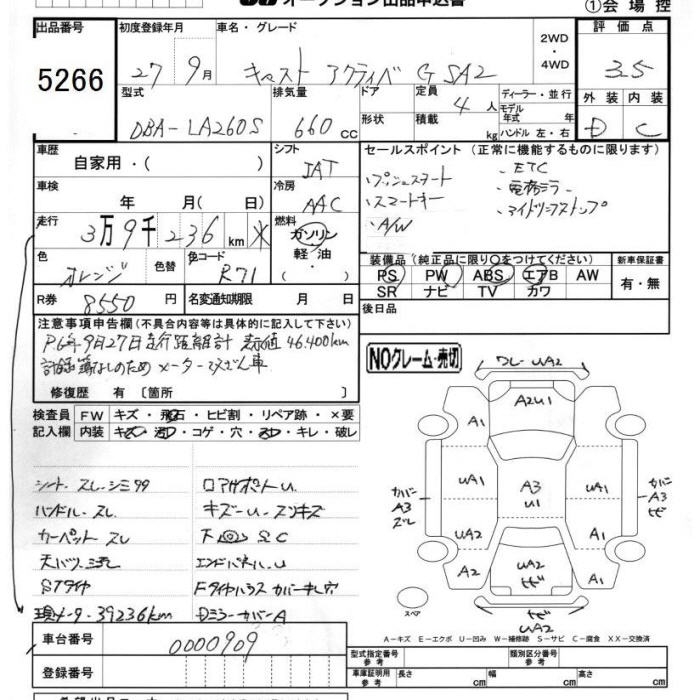 オークション出品申込書
①会場控
出品番号 初度登録年月 車名・グレード 2WD・4WD 評価点
5266 27年9月 キャスト アクティバ G SA2 3.5
型式 排気量 ドア 定員 4人 ディーラー・並行 外装 内装
DBA-LA260S 660cc 形状 積載 kg モデル年式 年式 ハンドル 左・右 D C
車歴 シフト セールスポイント (正常に機能するものに限ります)
自家用・( ) IAT
車検 冷房 ・プッシュスタート ・ETC
年 月( 日) AAC ・スマートキー ・電格ミラー
走行 燃料 ・A/W ・アイドリングストップ
3万9千236km ガソリン 軽油 ・( )
色 色替 色コード 装備品(純正品に限り○をつけてください) 新車保証書
オレンジ R71 PS PW ABS エアB AW 有・無
R券 8550円 名変通知期限 月 日 SR ナビ TV カワ
後日品
注意事項申告欄(不具合内容等は具体的に記入して下さい)
R6年9月27日走行距離計 表示値46.400km
記録簿なしのため メーター改ざん車
修復歴 有〔箇所 〕
NOクレーム・売切
検査員 FW キズ・飛石・ヒビ割・リペア跡・×要
記入欄 内装 キズ・汚れ・コゲ・穴・スレ・キレ・破レ
シート・スレ・シミ ロアサポートU
ハンドル・スレ キズ-U・スリキズ
カーペットスレ 下回りSC
天バリ汚れ エンドパネルU
Sタイヤ
現メーター39236km Dミラーカバー A
車台番号 0000909
登録番号
ワレ UA2
A2U1
A1
UA1 A3 U1 UA1
カバーA3スレ
カバーA3ヒビ
UA2 A1
A2 UA2ヒビ A1
スペア
ヒビUA2
A-キズ E-エクボ U-凹み W-補修跡 S-サビ C-腐食 XX-交換済
型式指定番号参考 類別区分番号参考
車庫証明用参考 長さ cm 幅 cm 高さ cm